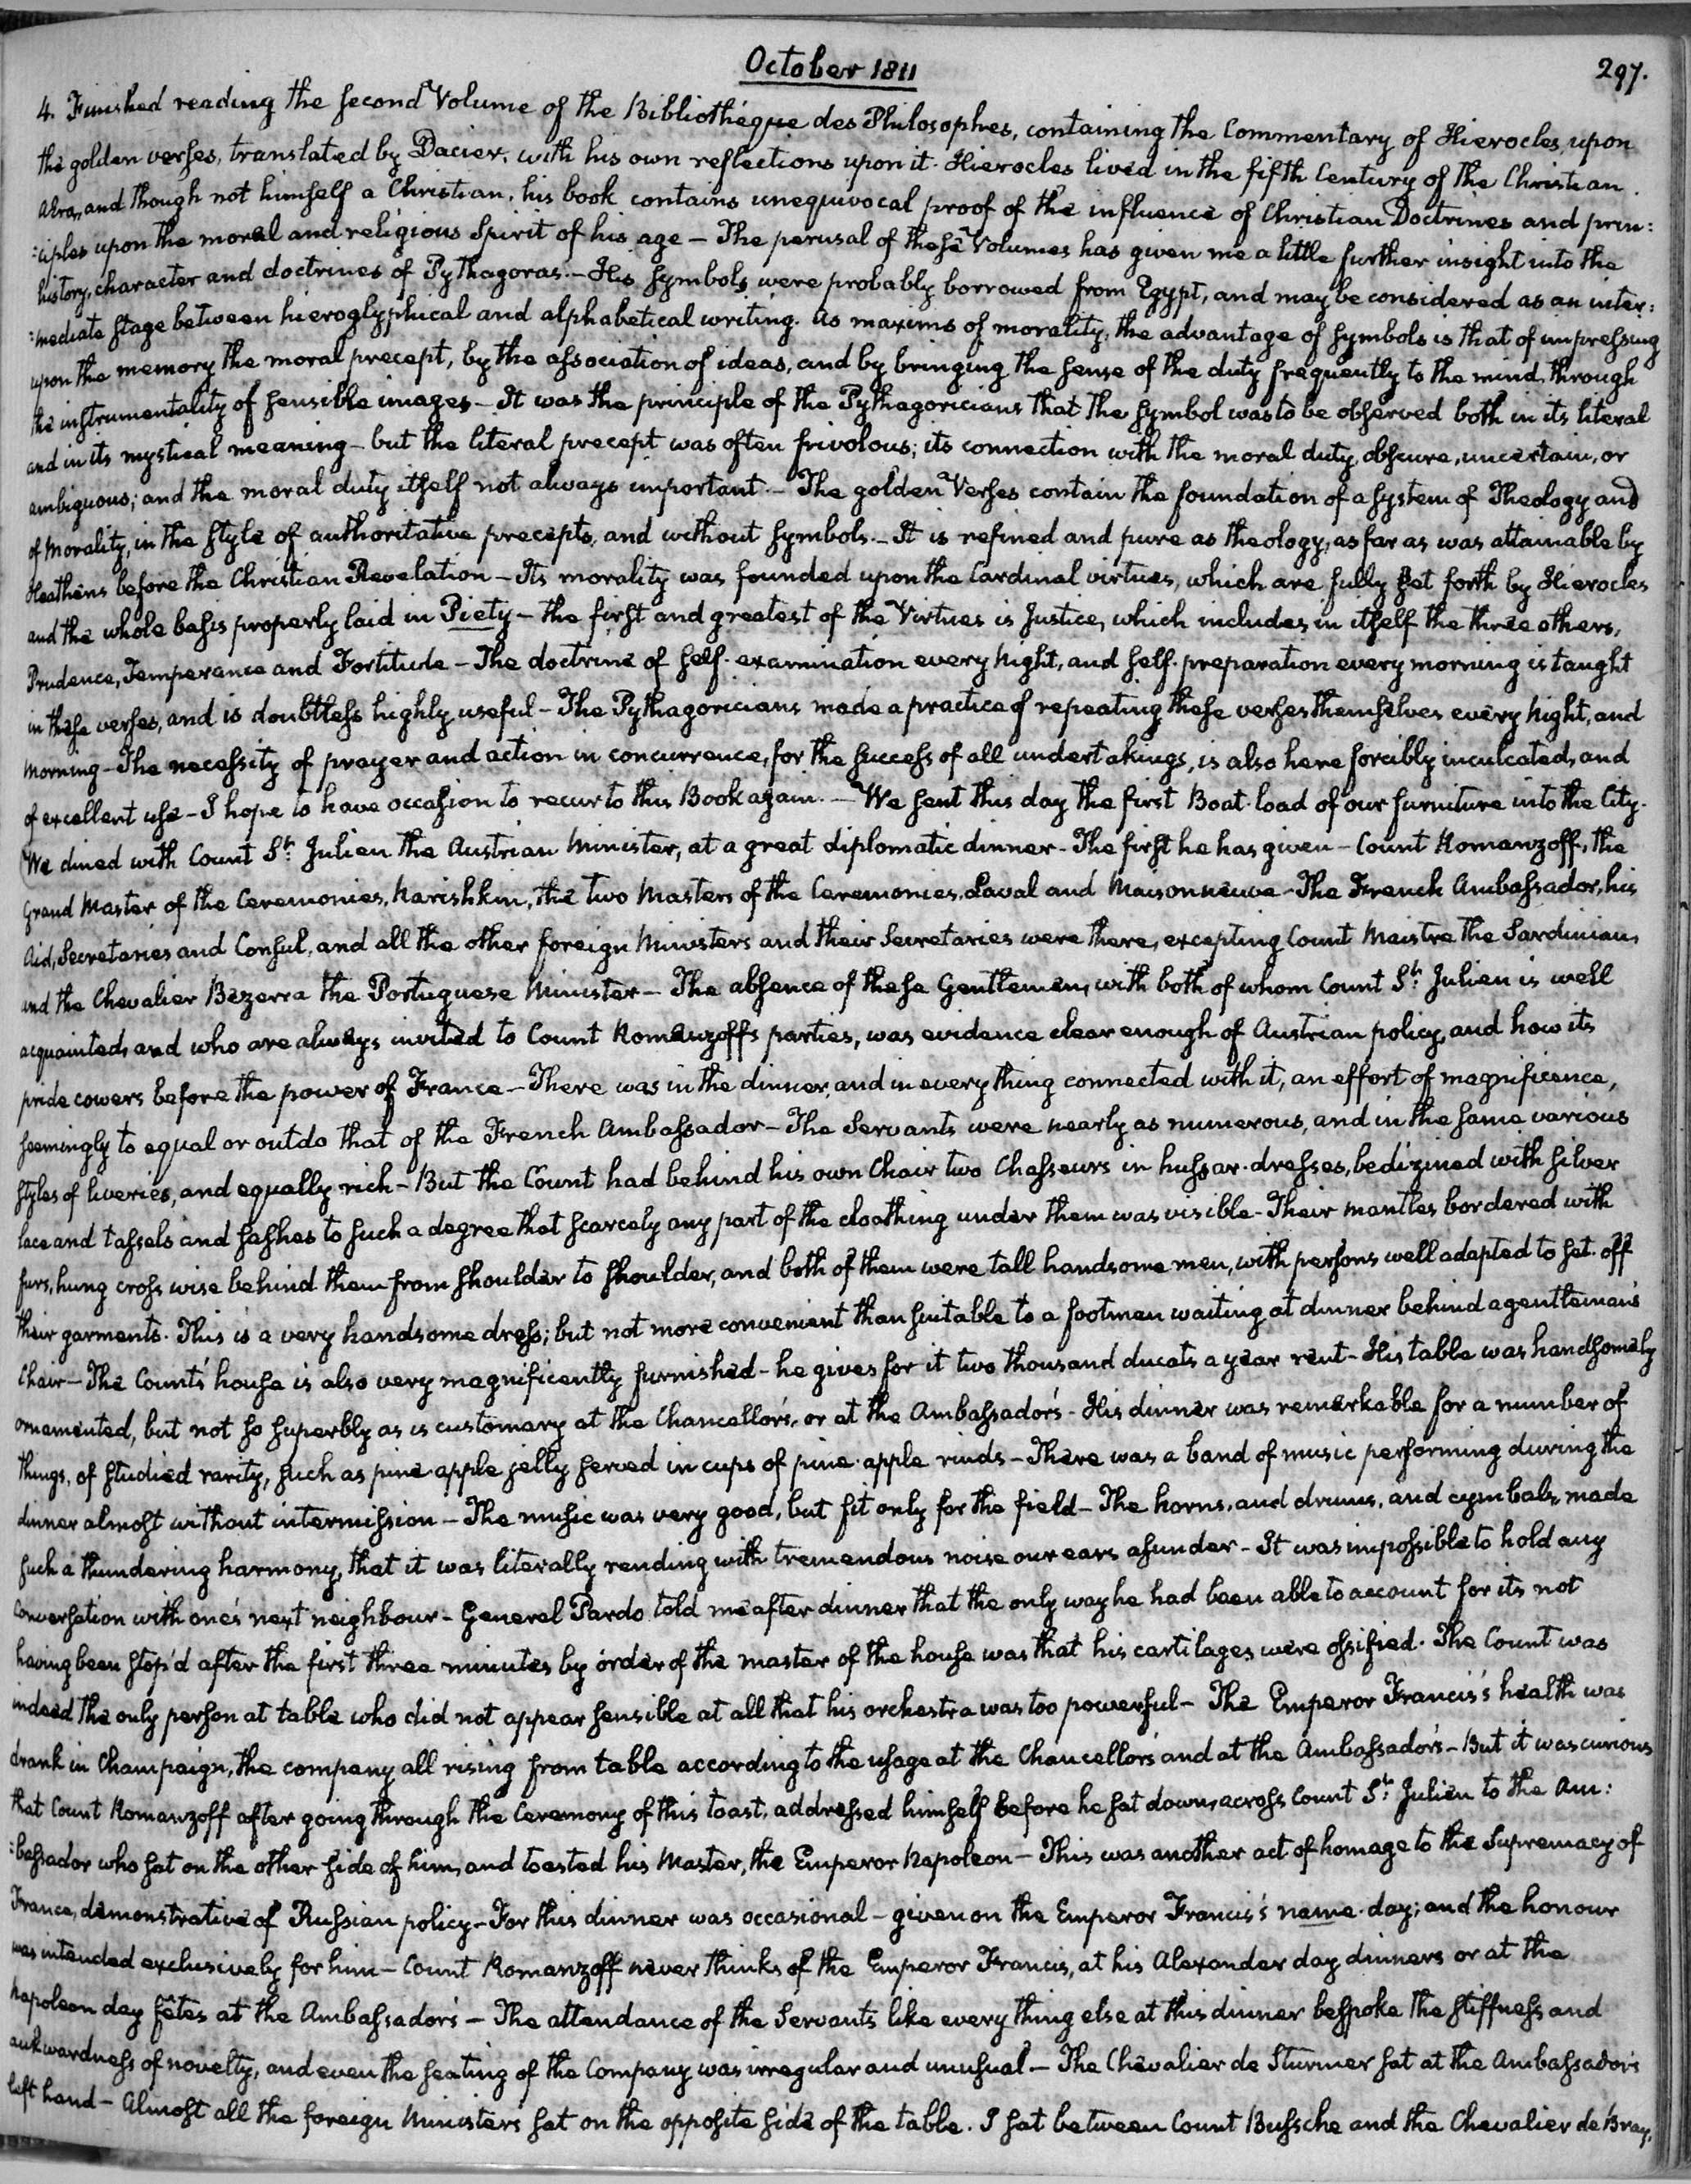 October 1811
297.
4. Finished reading the second Volume of the Bibliothéque des Philosophes, containing the Commentary of Hierocles, upon
the golden verses, translated by Dacier, with his own reflections upon it. Hierocles lived in the fifth Century of the Christian
Aera, and though not himself a Christian, his book contains unequivocal proof of the influence of Christian Doctrines and prin:
:ciples upon the moral and religious Spirit of his age — The perusal of these Volumes has given me a little further insight into the
history, character and doctrines of Pythagoras. — His symbols were probably borrowed from Egypt, and may be considered as an inter:
:mediate stage between hieroglyphical and alphabetical writing. As maxims of morality, the advantage of symbols is that of impressing
upon the memory the moral precept, by the association of ideas, and by bringing the sense of the duty frequently to the mind, through
the instrumentality of sensible images — It was the principle of the Pythagoricians that the symbol was to be observed both in its literal
and in its mystical meaning — but the literal precept was often frivolous; its connection with the moral duty, obscure, uncertain, or
ambiguous; and the moral duty itself not always important. — The golden Verses contain the foundation of a system of Theology and
of Morality, in the style of authoritative precepts, and without symbols. — It is refined and pure as theology, as far as was attainable by
Heathens before the Christian Revelation — Its morality was founded upon the Cardinal virtues, which are fully set forth by Hierocles
and the whole basis properly laid in Piety — the first and greatest of the Virtues is Justice, which includes in itself the three others,
Prudence, Temperance and Fortitude — The doctrine of self-examination every Night, and self-preparation every morning is taught
in these verses, and is doubtless highly useful — The Pythagoricians made a practice of repeating these verses themselves every Night, and
Morning — The necessity of prayer and action in concurrence, for the success of all undertakings, is also here forcibly inculcated, and
of excellent use — I hope to have occasion to recur to this Book again. — We sent this day the first Boat-load of our furniture into the City.
We dined with Count St: Julien the Austrian Minister, at a great diplomatic dinner — The first he has given — Count Romanzoff, the
Grand Master of the Ceremonies, Narishkin, the two Masters of the Ceremonies, Laval and Maisonneuve — The French Ambassador, his
Aid, Secretaries and Consul, and all the other foreign Ministers and their Secretaries were there, excepting Count Maistre the Sardinian,
and the Chevalier Bezerra the Portuguese Minister — The absence of these Gentlemen, with both of whom Count St: Julien is well
acquainted, and who are always invited to Count Romanzoff's parties, was evidence clear enough of Austrian policy, and how its
pride cowers before the power of France — There was in the dinner, and in every thing connected with it, an effort of magnificence,
seemingly to equal or outdo that of the French Ambassador — The Servants were nearly as numerous, and in the same various
styles of liveries, and equally rich — But the Count had behind his own Chair two Chasseurs in hussar-dresses, bedizined with silver
lace and tassels and sashes to such a degree that scarcely any part of the cloathing under them was visible — Their mantles bordered with
furs, hung cross wise behind them from shoulder to shoulder, and both of them were tall handsome men, with persons well adapted to set off
their garments. This is a very handsome dress; but not more convenient than suitable to a footman waiting at dinner behind a gentleman's
Chair — The Count's house is also very magnificently furnished — he gives for it two thousand ducats a year rent — His table was handsomely
ornamented, but not so superbly as is customary at the Chancellor's, or at the Ambassador's — His dinner was remarkable for a number of
things, of studied rarity, such as pine-apple jelly served in cups of pine-apple rinds — There was a band of music performing during the
dinner almost without intermission — The music was very good, but fit only for the field — The horns, and drums, and cymbals, made
such a thundering harmony, that it was literally rending with tremendous noise our ears asunder — It was impossible to hold any
conversation with one's next neighbour — General Pardo told me after dinner that the only way he had been able to account for its not
having been stop'd after the first three minutes by order of the master of the house was that his cartilages were ossified. The Count was
indeed the only person at table who did not appear sensible at all that his orchestra was too powerful — The Emperor Francis's health was
drank in Champaign, the company all rising from table according to the usage at the Chancellor's and at the Ambassador's — But it was curious
that Count Romanzoff after going through the Ceremony of this toast, addressed himself before he sat down, across Count St: Julien to the Am:
:bassador who sat on the other side of him, and toasted his Master, the Emperor Napoleon — This was another act of homage to the Supremacy of
France, demonstrative of Russian policy — For this dinner was occasional — given on the Emperor Francis's name-day; and the honour
was intended exclusively for him — Count Romanzoff never thinks of the Emperor Francis, at his Alexander day dinners or at the
Napoleon day fêtes at the Ambassador's — The attendance of the Servants like every thing else at this dinner bespoke the stiffness and
aukwardness of novelty, and even the seating of the Company was irregular and unusual — The Chevalier de Sturmer sat at the Ambassador's
left hand — Almost all the foreign Ministers sat on the opposite side of the table. I sat between Count Bussche and the Chevalier de Bray,